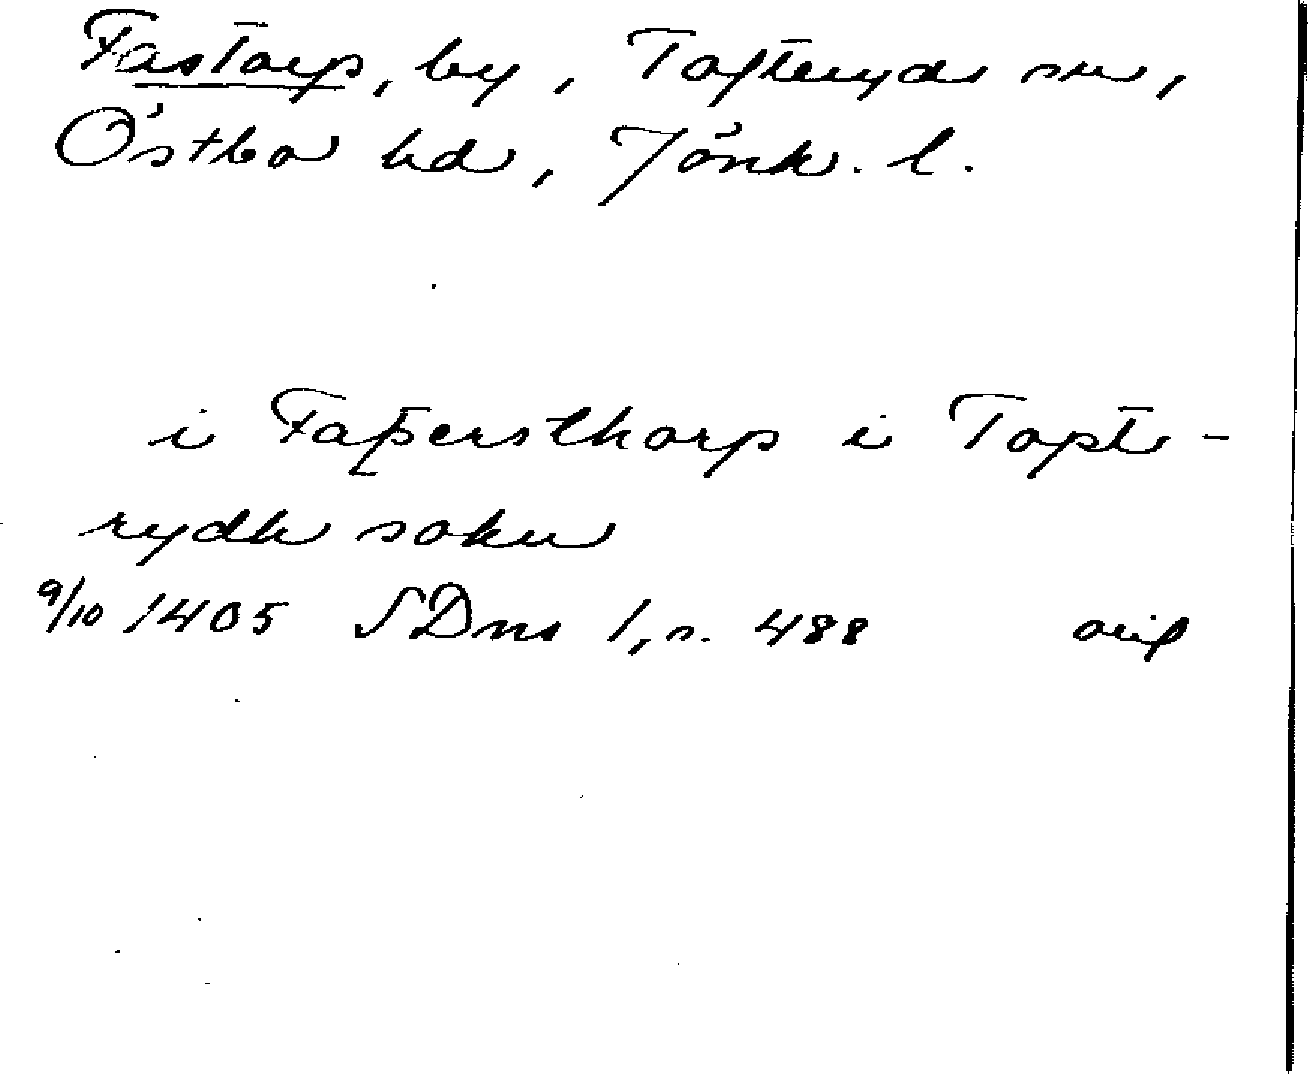 Fastarp, by, Tofteryds sn,
Östbo hd, Jönk. l.
i Faßersthorp i Topte-
rydh sokn
9/10 1405 SDns 1, s. 488 orig